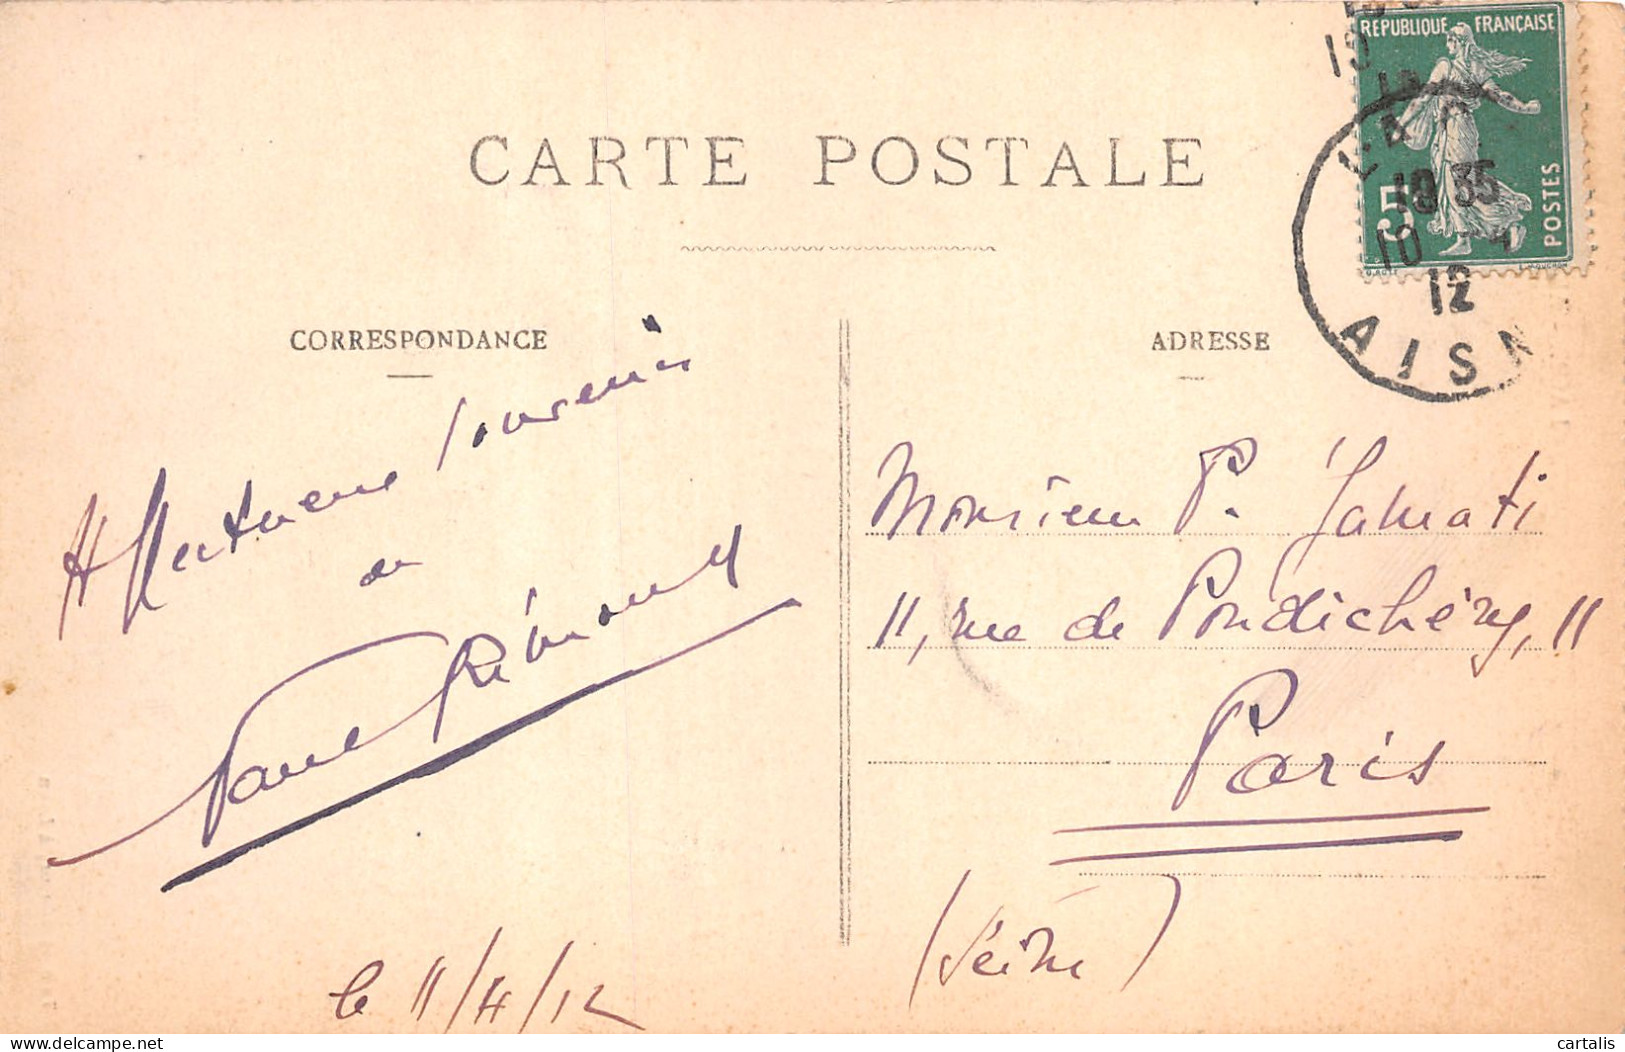 CARTE POSTALE
CORRESPONDANCE
ADRESSE
RÉPUBLIQUE FRANÇAISE
POSTES
5
10 35
10 -4
12
AISN
Affectueux souvenir
de
Paul Rémond
le 11/4/12
Monsieur P. Jamati
11, rue de Pondichéry, 11
Paris
(Seine)
delcampe.net
cartalis